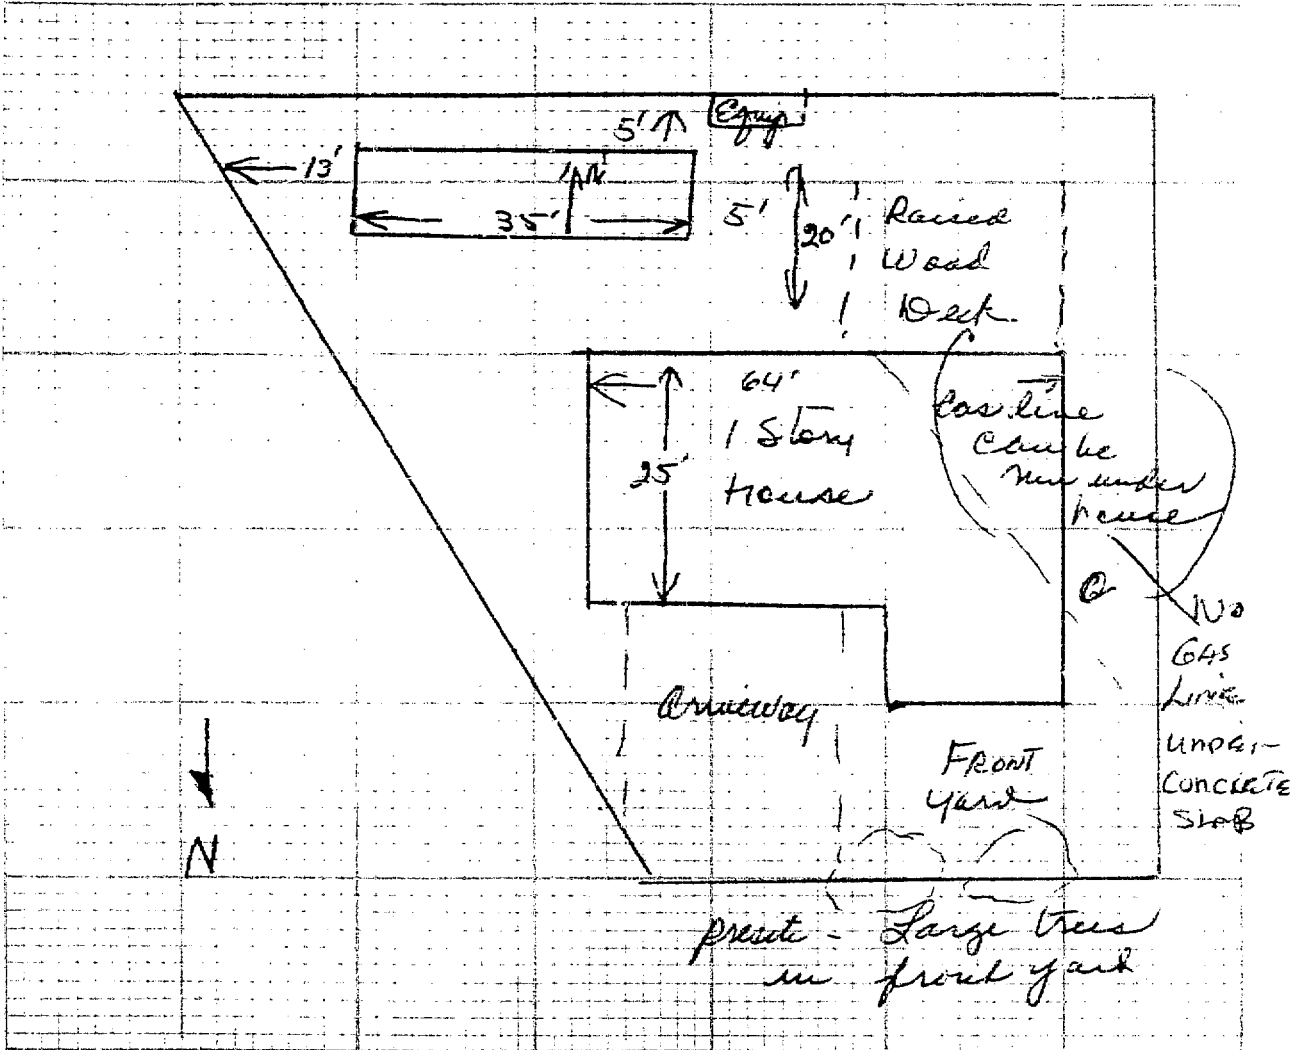 Equip
5'
13'
35'
5'
20'
Raised
Wood
Deck
64'
1 Story
House
25'
Gas line
can be
run under
house
No
GAS
Line
UNDER
CONCRETE
SLAB
Driveway
FRONT
yard
N
- Large trees
in front yard